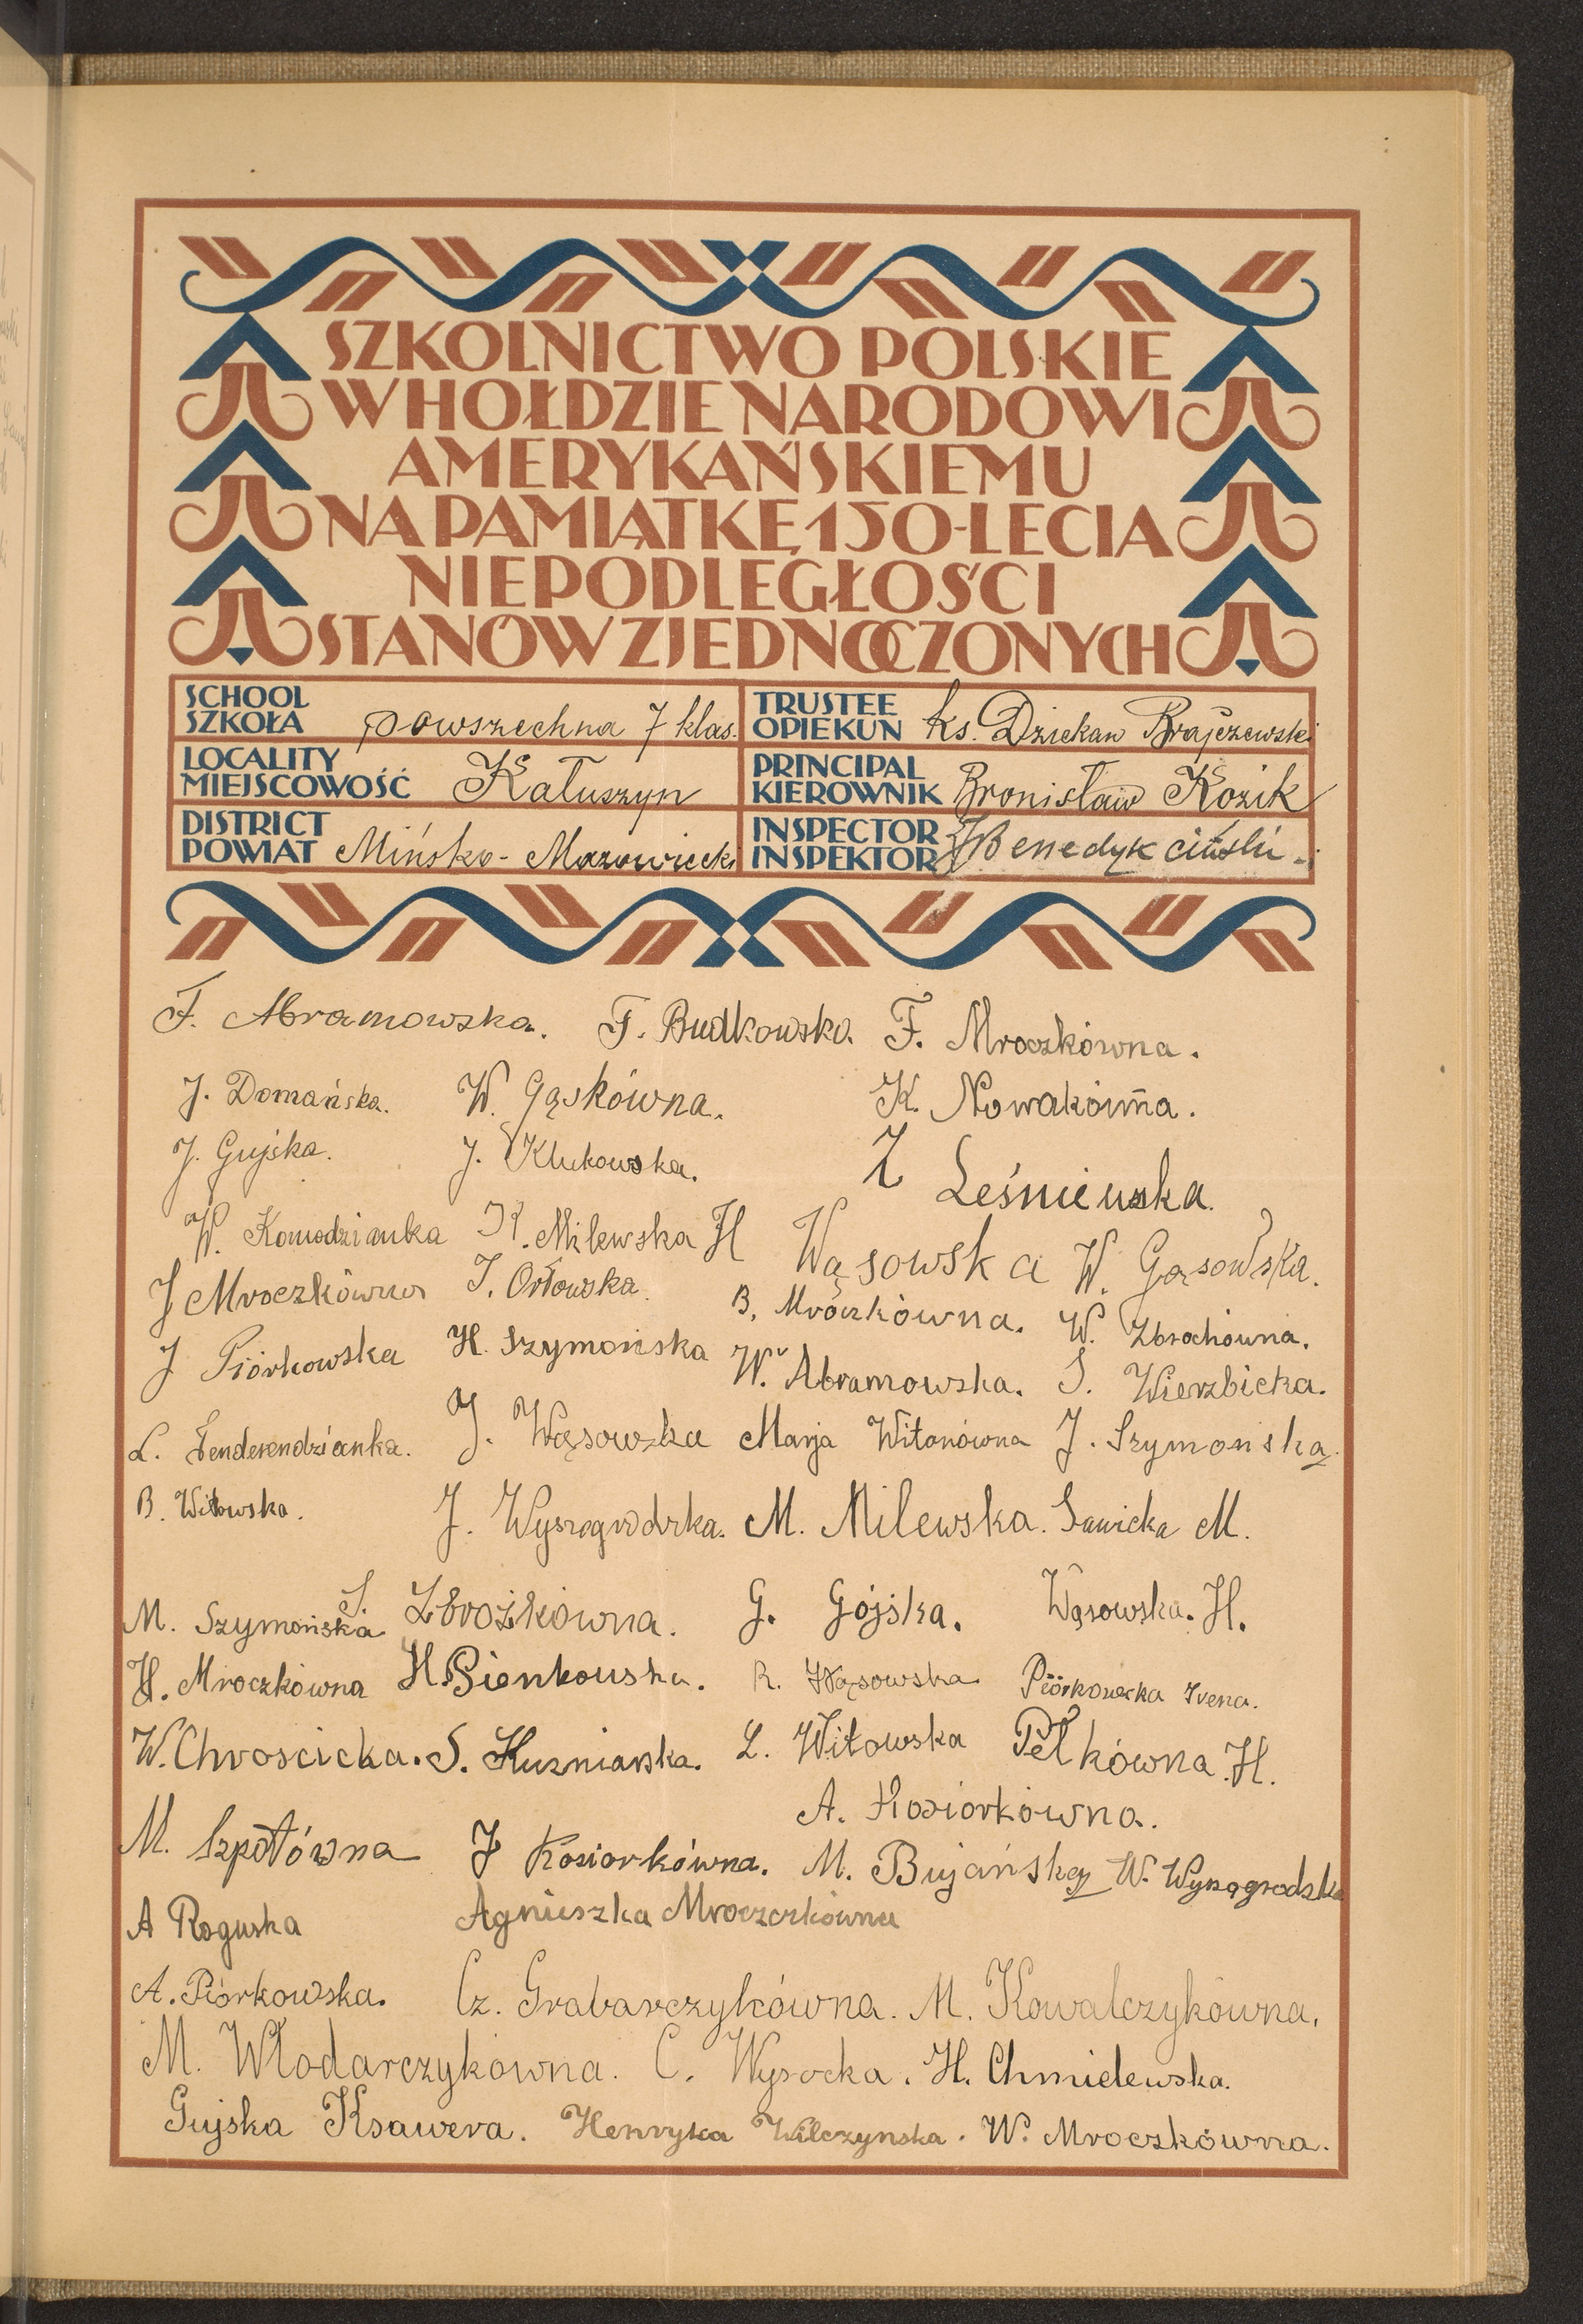 SZKOLNICTWO POLSKIE
W HOŁDZIE NARODOWI
AMERYKAŃSKIEMU
NA PAMIĄTKĘ 150-LECIA
NIEPODLEGŁOŚCI
STANÓW ZJEDNOCZONYCH
SCHOOL
SZKOŁA powszechna 7 klas.
TRUSTEE
OPIEKUN ks. Dziekan Brajczewski
LOCALITY
MIEJSCOWOŚĆ Kałuszyn
PRINCIPAL
KIEROWNIK Bronisław Kozik
DISTRICT
POWIAT Mińsko-Mazowiecki
INSPECTOR
INSPEKTOR Benedykciński
F. Abramowska. F. Budkowska. F. Mroczkówna.
J. Domańska. W. Gąskówna. K. Nowakówna.
J. Gujska. J. Klukowska. Z Leśniewska.
W. Komodzianka K. Milewska H Wąsowska W. Gąsowska.
J Mroczkówna J. Orłowska. B. Mróczkówna. W. Zbrochówna.
J Piórkowska H. Szymońska W. Abramowska. S. Wierzbicka.
L. Senderendzianka. J. Wąsowska Marja Witanówna J. Szymońska.
B. Witowska. J. Wyszogrodzka. M. Milewska. Sawicka M.
M. Szymońska S. Zbrożkówna. G. Gójska. Wąsowska. H.
H. Mroczkówna H. Bienkowska. R. Wąsowska Piórkowska Irena.
W. Chroscicka. S. Kuzniarska. L. Witowska Pełkówna. H.
A. Kosiorkówna.
M. Szpotówna J Kosiorkówna. M. Bujańska W. Wyszogrodzka
A Roguska Agnieszka Mroczczkówna
A. Piórkowska. Cz. Grabarczykówna. M. Kowalczykówna.
M. Włodarczykówna. C. Wysocka. H. Chmielewska.
Gujska Ksawera. Henryka Wilczynska. W. Mroczkówna.